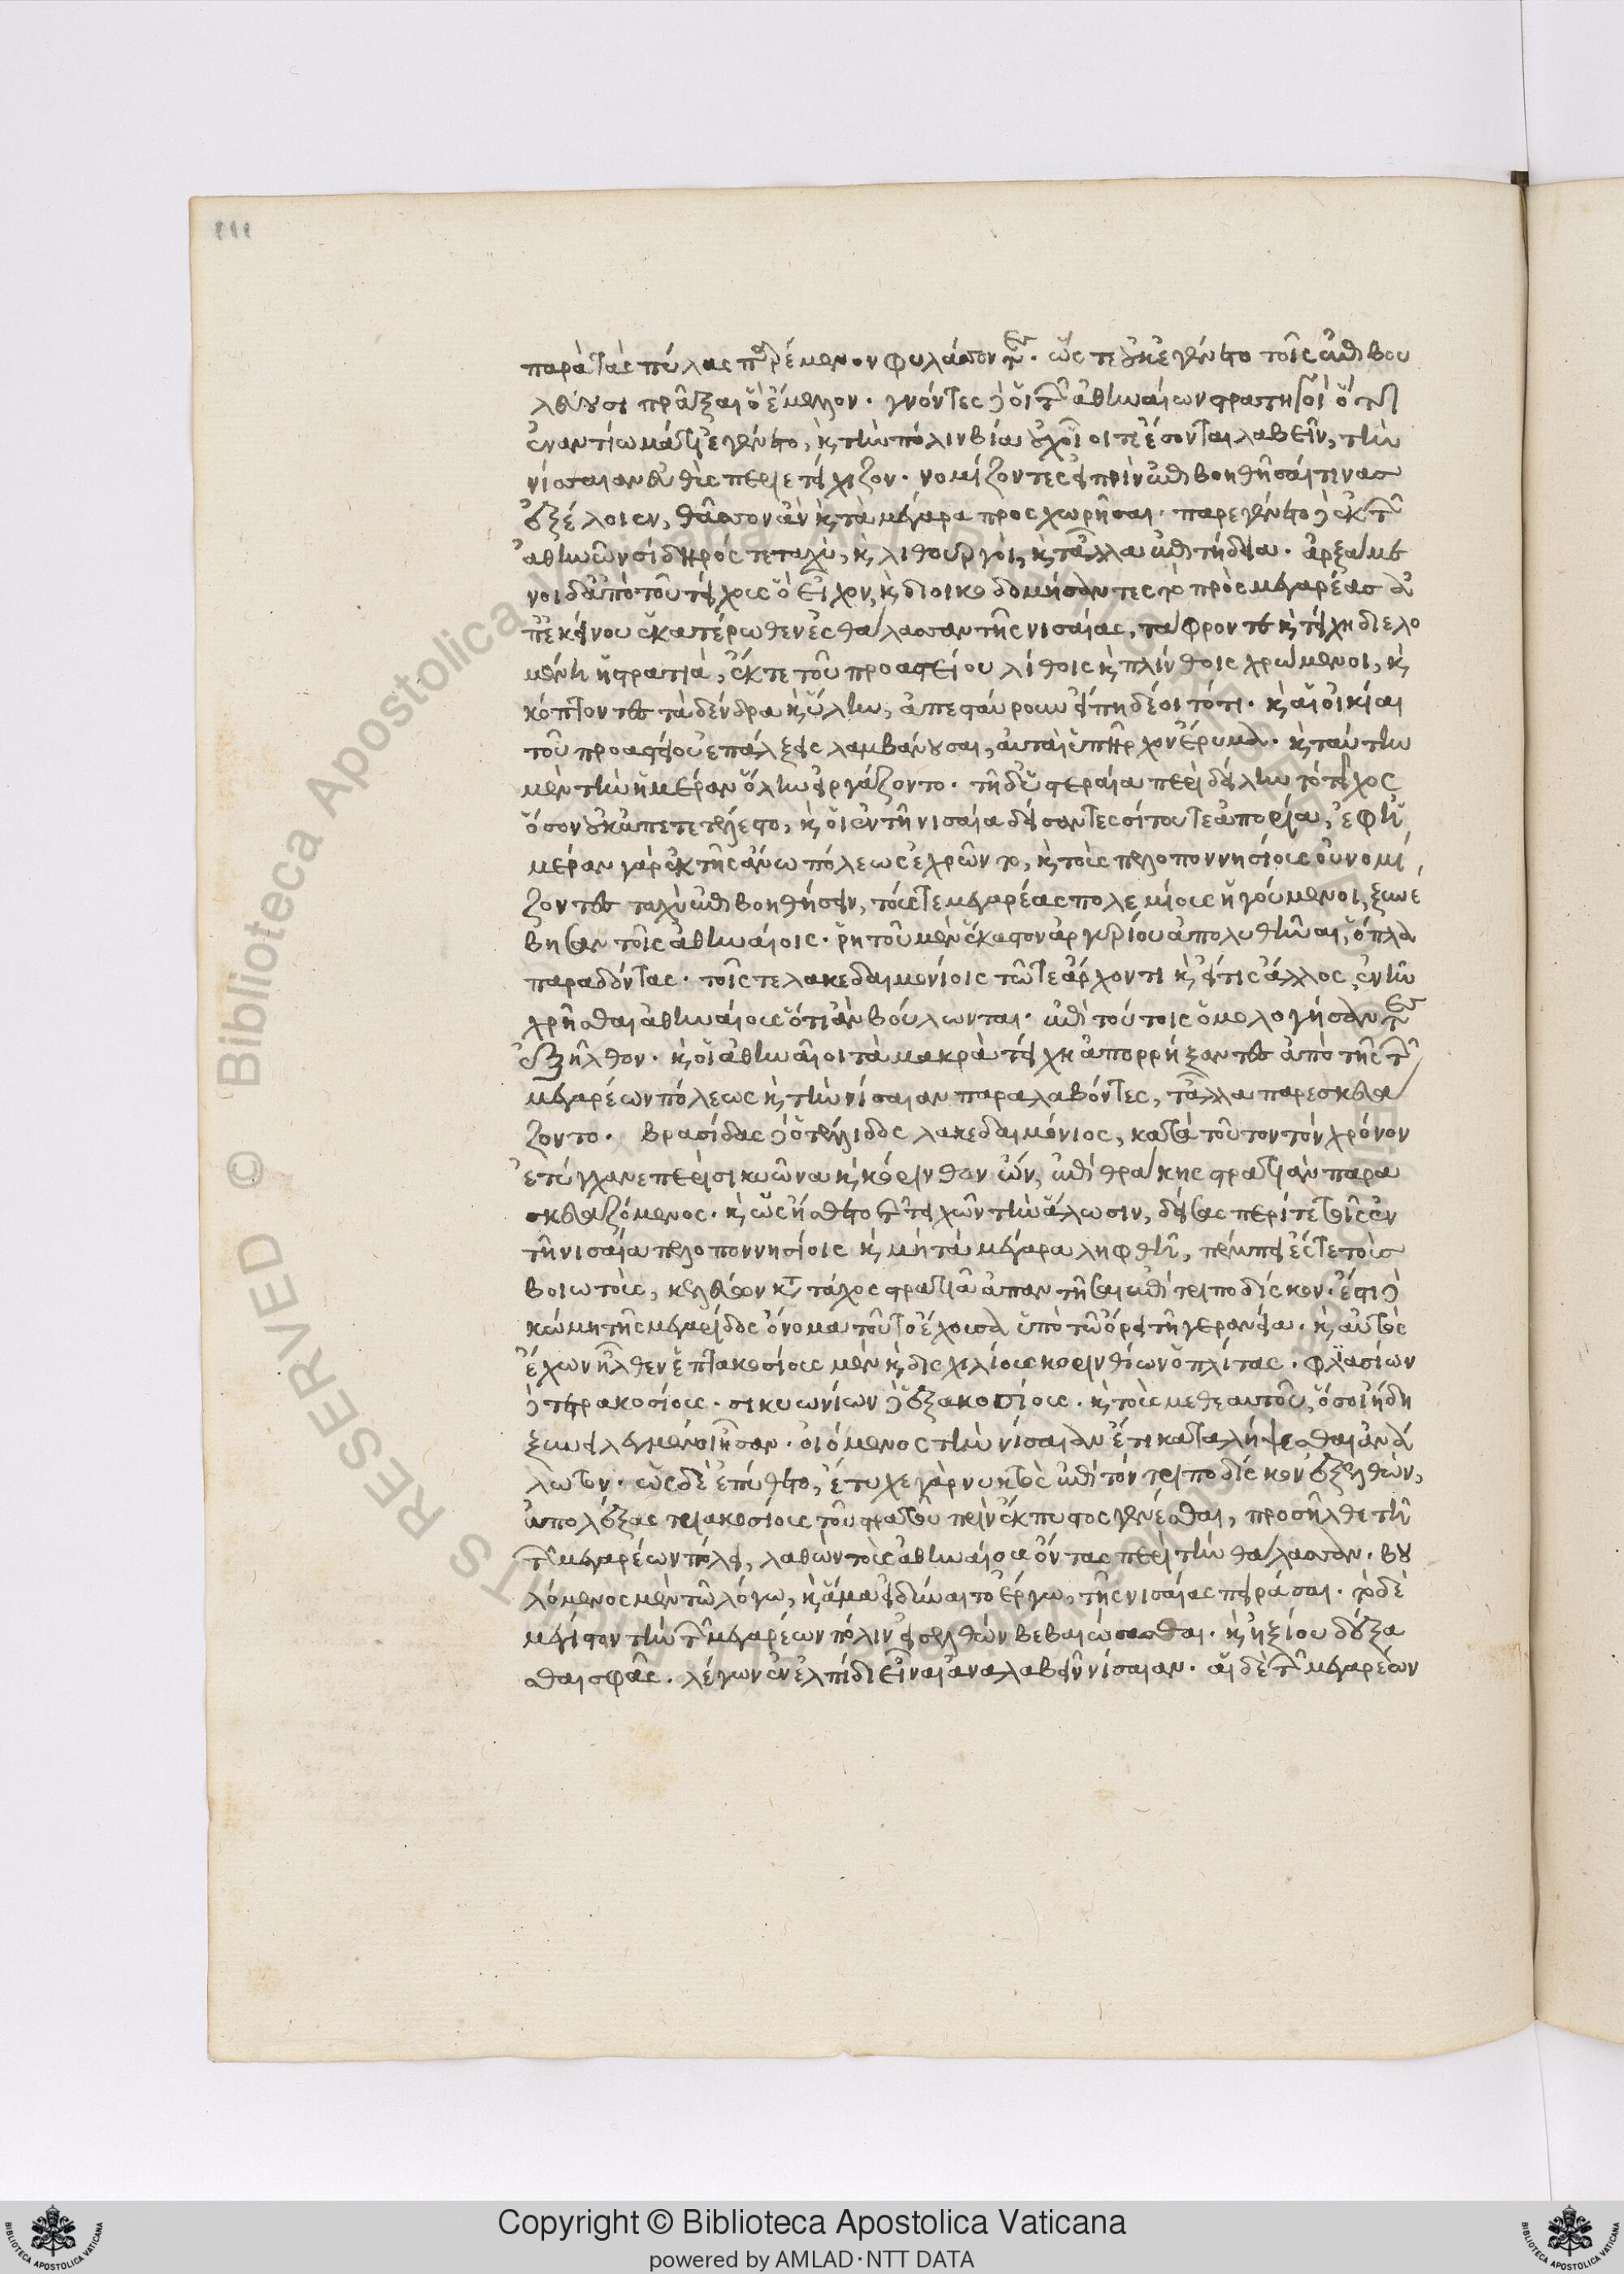 111
παρὰ τὰς πύλας παρέμενον φυλάσσοντες· ὥστε οὐκ ἐγένετο τοῖς ἐπιβου
λεύουσι πρᾶξαι ὃ ἔμελλον· γνόντες δὲ οἱ τῶν ἀθηναίων στρατηγοὶ ὅτι
ἐναντίωμά τι ἐγένετο, καὶ τὴν πόλιν βία οὐχ οἷοί τε ἔσονται λαβεῖν, τὴν
νίσαιαν εὐθὺς περιετείχιζον· νομίζοντες εἰ πρὶν ἐπιβοηθῆσαί τινας
ἐξέλοιεν, θᾶσσον ἂν καὶ τὰ μέγαρα προσχωρῆσαι· παρεγένετο δὲ ἐκ τῶν
ἀθηνῶν σίδηρός τε ταχὺ, καὶ λιθουργοὶ, καὶ τἆλλα ἐπιτήδεια· ἀρξάμε
νοι δ' ἀπὸ τοῦ τείχους ὃ εἶχον, καὶ διοικοδομήσαντες τὸ πρὸς μεγαρέας ἀ
π' ἐκείνου ἑκατέρωθεν ἐς θάλασσαν τῆς νισαίας, τάφρον τε καὶ τείχη διελο
μένη ἡ στρατιὰ, ἔκ τε τοῦ προαστείου λίθοις καὶ πλίνθοις χρώμενοι, καὶ
κόπτοντες τὰ δένδρα καὶ ὕλην, ἀπεσταύρουν εἴ πη δέοι τότι· καὶ αἱ οἰκίαι
τοῦ προαστείου ἐπάλξεις λαμβάνουσαι, αὐταὶ ὑπῆρχον ἔρυμα· καὶ ταύτην
μὲν τὴν ἡμέραν ὅλην εἰργάζοντο· τῆ δ' ὑστεραία περὶ δείλην τὸ τεῖχος
ὅσον οὐκ ἀπετετέλεστο, καὶ οἱ ἐν τῆ νισαία δείσαντες σίτου τε ἀπορία, ἐφ' ἡ
μέραν γὰρ ἐκ τῆς ἄνω πόλεως ἐχρῶντο, καὶ τοὺς πελοποννησίους οὐ νομί
ζοντες ταχὺ ἐπιβοηθήσειν, τούς τε μεγαρέας πολεμίους ἡγούμενοι, ξυνέ
βησαν τοῖς ἀθηναίοις· ῥητοῦ μὲν ἕκαστον ἀργυρίου ἀπολυθῆναι, ὅπλα
παραδόντας· τοῖς τε λακεδαιμονίοις τῶ τε ἄρχοντι καὶ εἴ τις ἄλλος ἐνῆν
χρῆσθαι ἀθηναίους ὅτι ἂν βούλωνται· ἐπὶ τούτοις ὁμολογήσαντες
ἐξῆλθον· καὶ οἱ ἀθηναῖοι τὰ μακρὰ τείχη ἀπορρήξαντες ἀπὸ τῆς τῶν
μεγαρέων πόλεως καὶ τὴν νίσαιαν παραλαβόντες, τἆλλα παρεσκευά
ζοντο· βρασίδας δὲ ὁ τέλλιδος λακεδαιμόνιος, κατὰ τοῦτον τὸν χρόνον
ἐτύγχανε περὶ σικυῶνα καὶ κόρινθον ὢν, ἐπὶ θράκης στρατιὰν παρα
σκευαζόμενος· καὶ ὡς ἤσθετο τῶν τειχῶν τὴν ἅλωσιν, δείσας περί τε τοῖς ἐν
τῆ νισαία πελοποννησίοις καὶ μὴ τὰ μέγαρα ληφθῆ, πέμπει ἔς τε τοὺς
βοιωτοὺς, κελεύων κατὰ τάχος στρατιᾶ ἀπαντῆσαι ἐπὶ τριποδίσκον· ἔστι δὲ
κώμη τῆς μεγαρίδος ὄνομα τοῦτο ἔχουσα ὑπὸ τῶ ὄρει τῆ γερανεία· καὶ αὐτὸς
ἔχων ἦλθεν ἑπτακοσίους μὲν καὶ δισχιλίους κορινθίων ὁπλίτας· φλιασίων
δὲ τετρακοσίους· σικυωνίων δὲ ἑξακοσίους· καὶ τοὺς μεθ' αὑτοῦ, ὅσοι ἤδη
ξυνειλεγμένοι ἦσαν· οἰόμενος τὴν νίσαιαν ἔτι καταλήψεσθαι ἀνά
λωτον· ὡς δὲ ἐπύθετο, ἔτυχε γὰρ νυκτὸς ἐπὶ τὸν τριποδίσκον ἐξελθὼν,
ἀπολέξας τριακοσίους τοῦ στρατοῦ πρὶν ἔκπυστος γενέσθαι, προσῆλθε τῆ
τῶν μεγαρέων πόλει, λαθὼν τοὺς ἀθηναίους ὄντας περὶ τὴν θάλασσαν· βου
λόμενος μὲν τῶ λόγω, καὶ ἅμα εἰ δύναιτο ἔργω, τῆς νισαίας πειράσαι· τὸ δὲ
μέγιστον τὴν τῶν μεγαρέων πόλιν εἰσελθὼν βεβαιώσασθαι· καὶ ἠξίου δέξα
σθαι σφᾶς· λέγων ἐν ἐλπίδι εἶναι ἀναλαβεῖν νίσαιαν· αἱ δὲ τῶν μεγαρέων
Copyright © Biblioteca Apostolica Vaticana
powered by AMLAD·NTT DATA